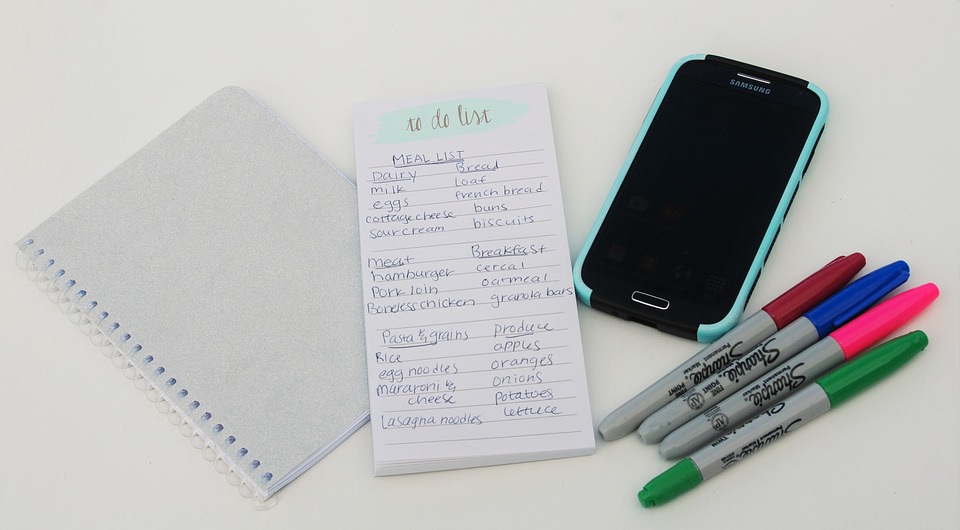 to do list
MEAL LIST
Dairy
milk
eggs
cottage cheese
sour cream
Bread
loaf
french bread
buns
biscuits
meat
hamburger
Pork loin
Boneless chicken
Breakfast
cereal
oatmeal
granola bars
Pasta & grains
Rice
egg noodles
Mararoni &
cheese
Lasagna noodles
produce
apples
oranges
onions
potatoes
lettuce
SAMSUNG
Sharpie
FINE POINT
Permanent Marker
Sharpie
FINE POINT
Sharpie
Permanent Marker
FINE POINT
Sharpie
TWIN